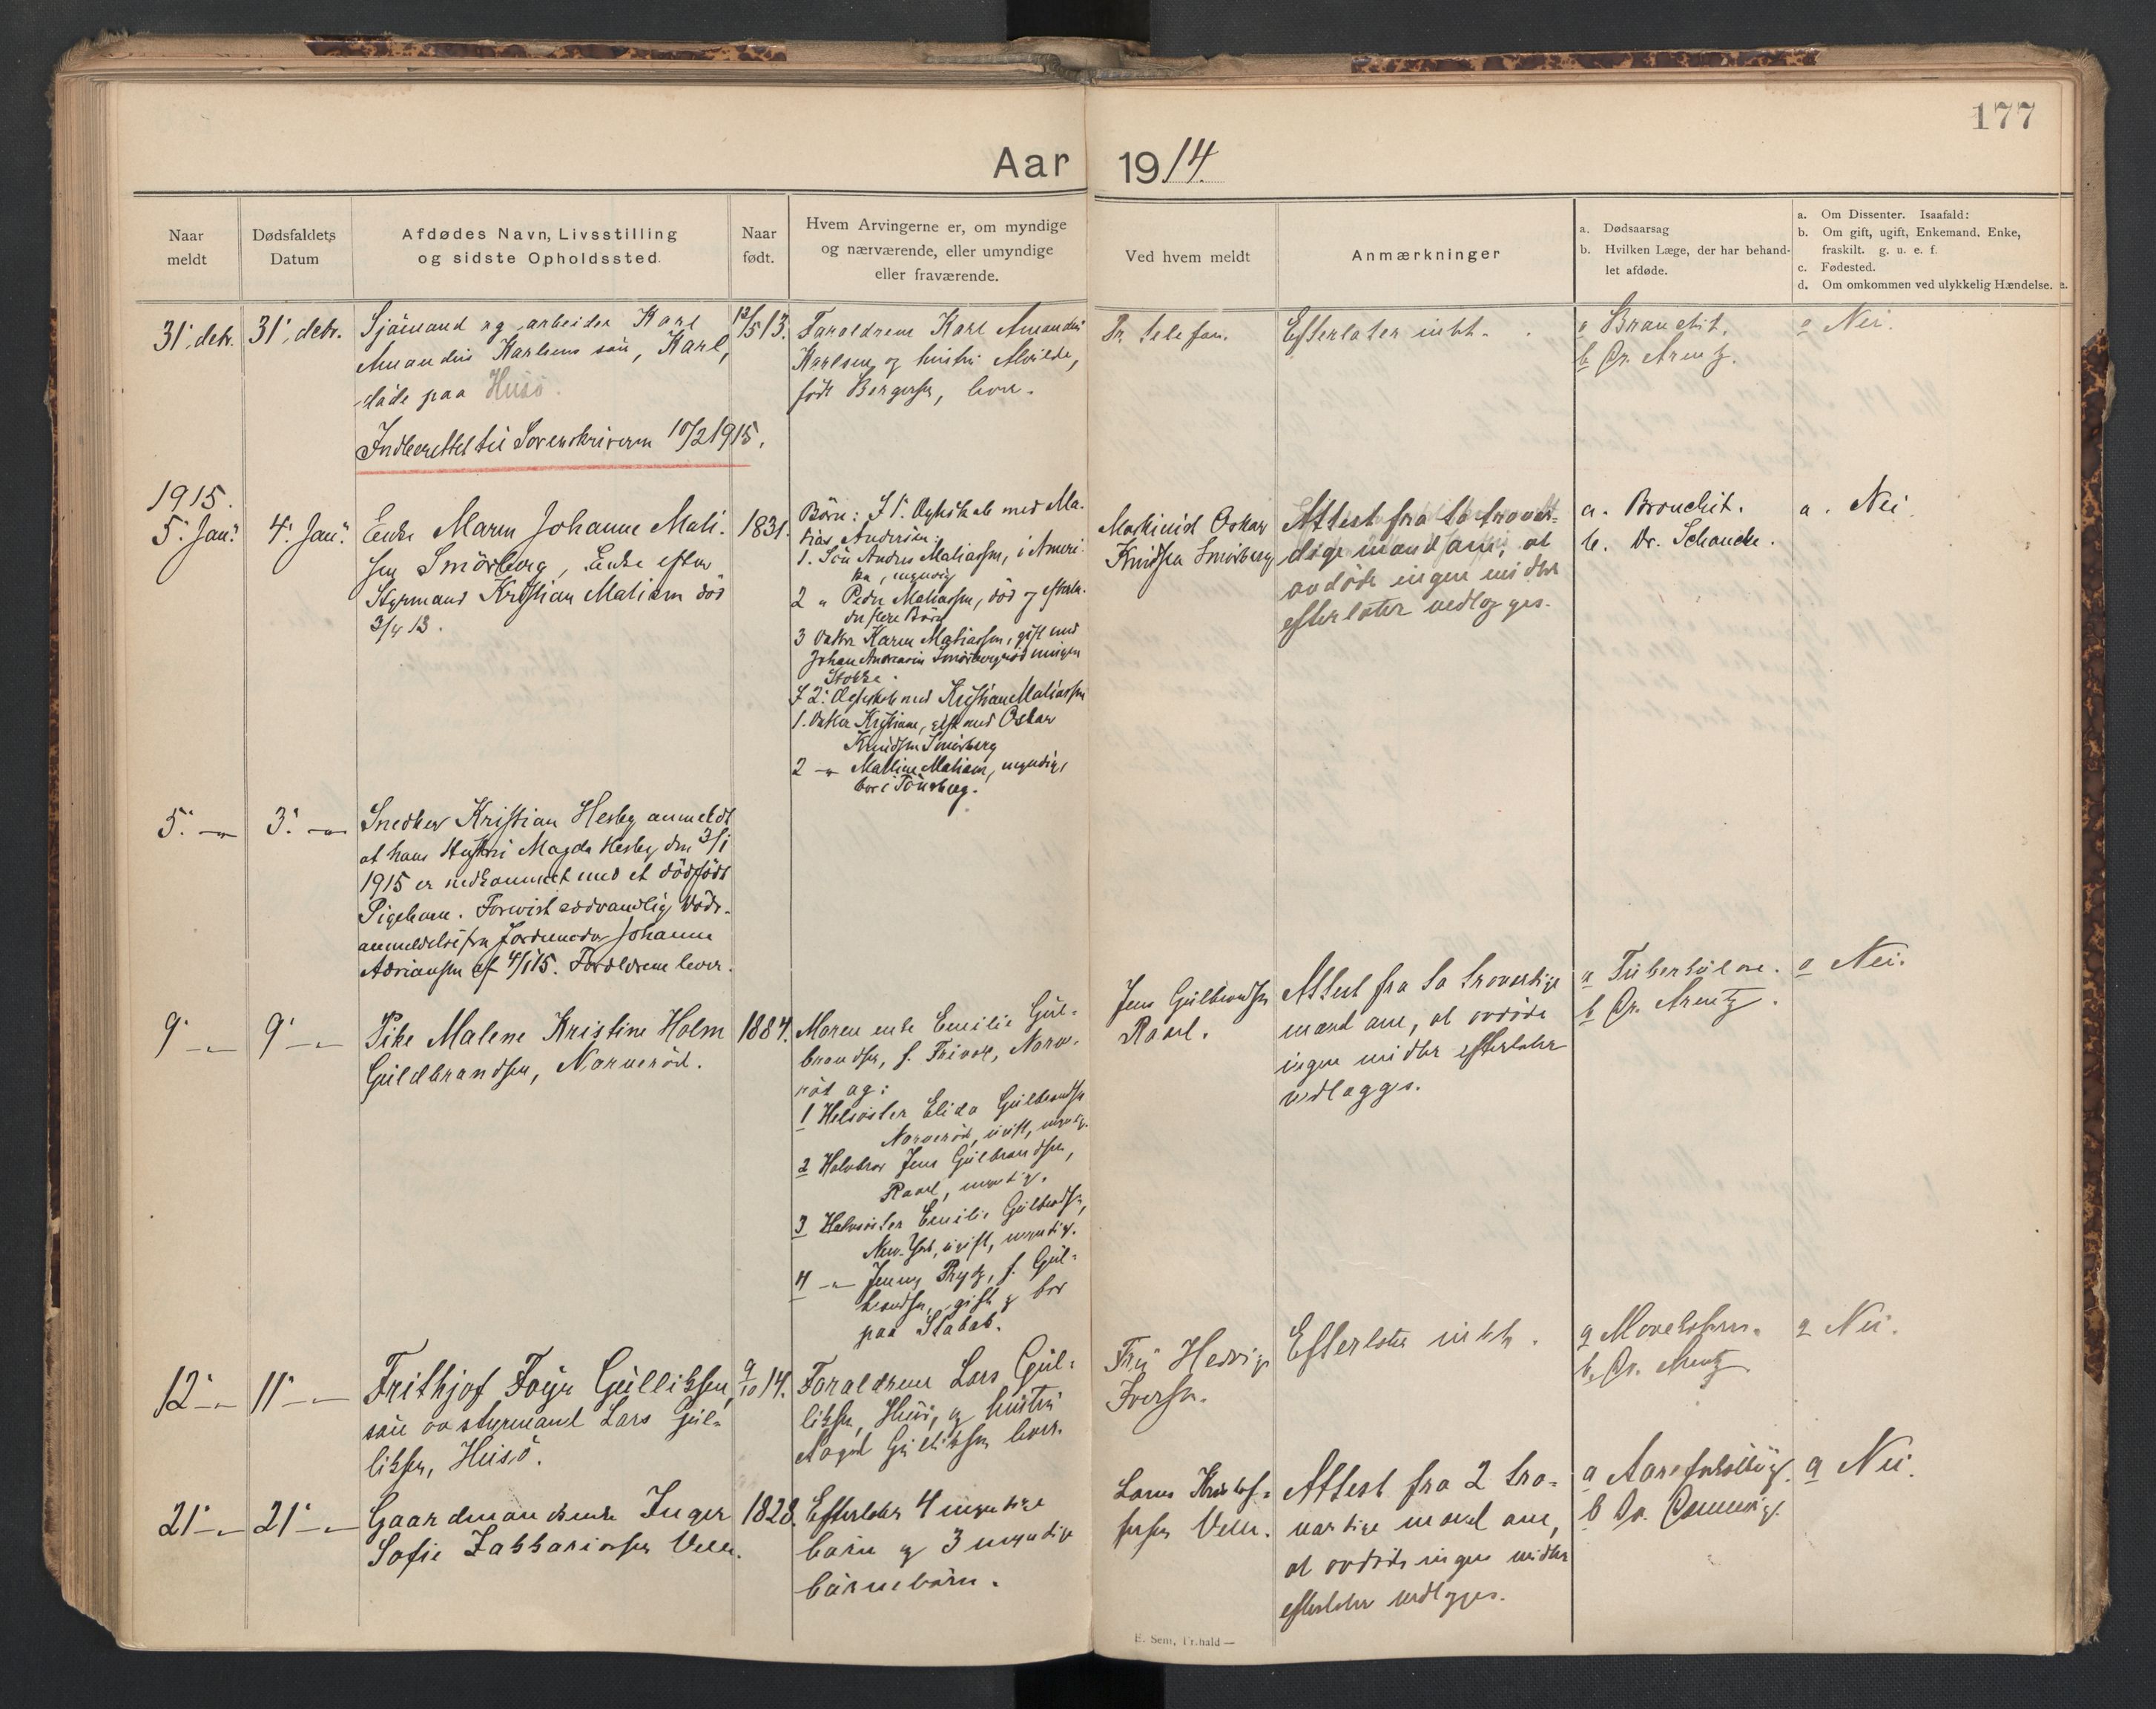 177
Aar 1914.
Naar meldt
Dødsfaldets Datum
Afdødes Navn, Livsstilling og sidste Opholdssted.
Naar født.
Hvem Arvingerne er, om myndige og nærværende, eller umyndige eller fraværende.
Ved hvem meldt
Anmærkninger
a. Dødsaarsag
b. Hvilken Læge, der har behandlet afdøde.
a. Om Dissenter. Isaafald:
b. Om gift, ugift, Enkemand, Enke, fraskilt. g. u. e. f.
c. Fødested.
d. Om omkommen ved ulykkelig Hændelse.
31' debr.
31' debr.
Sjömand og arbeider Karl
Amandus Karlsens sön, Karl,
döde paa Husö.
Indberettet til Sorenskriveren 10/2 1915.
12/5 13.
Foraldrene Karl Amandus
Karlsen og hustru Alvilde,
födt Bergersen, lever.
Pr. telefon.
Efterlater intet.
a Bronchit.
b Dr. Arentz.
a Nei.
1915.
5' Jan.
4' Jan.
Enke Maren Johanne Mati-
sen Smörberg, Enke efter
Styrmand Kristian Matisen död
3/4 13.
1831.
Börn: I 1' Ægteskab med Ma-
tias Andersen:
1. Sön Andres Matiassen, i Ameri-
ka, myndig
2 " Peder Matiassen, död og efterla-
der flere Börn
3 Datter Karen Matiassen, gift med
Johan
Stokke.
I 2' Ægteskab med Kristian Matiassen
1. Datter Kristiane, gift med Oskar
Knudsen Smörberg
2 -"- Matline Matisen, myndig,
bor i Tönsberg.
Maskinist Oskar
Knudsen Smörberg
Attest fra to trover-
dige mænd om, at
avdöde ingen midler
efterlater vedlægges.
a. Bronchit.
b. Dr. Schancke.
a. Nei
5' -"-
3' -"-
Snedker Kristian Hesby anmeldt
at hans Hustru Magda Hesby den 3/1
1915 er nedkommet med et dödfödt
Pigebarn. Forevist sedvanlig Döds-
anmeldelse fra Jordmoder Johanne
Adriansen af 4/1 15. Foreldrene lever.
9' -"-
9' -"-
Pike Malene Kristine Holm
Guldbrandsen, Narveröd.
1884.
Moren enke Emilie Gul-
brandsen, f. Narve-
röd og:
1 Helsöster Elida Gulbrandsen
Narveröd, ugift, myndig.
2 Halvbror Jens Gulbrandsen,
Ravel, myndig.
3 Halvsöster Emilie Gulbrandsen,
New-York, ugift, myndig.
4 -"- Jenny f. Gul-
brandsen, gift og bor
paa
Jens Gulbrandsen
Ravel.
Attest fra to troverdige
mænd om, at avdöde
ingen midler efterlater
vedlægges.
a Tuberkulose.
b Dr. Arentz.
a Nei.
12' -"-
11' -"-
Frithjof Föyn Gulliksen,
sön av styrmand Lars Gul-
liksen, Husö.
9/10 14.
Foraldrene Lars Gul-
liksen, Husö, og hustru
Aagot Gulliksen lever.
Fru Hedvig
Iversen.
Efterlater intet.
a
b. Dr. Arentz
a Nei.
21' -"-
21' -"-
Gaardmandsenke Inger
Sofie Zakkariassen Velle.
1828.
Efterlater 4 myndige
börn og 3 myndige
börnebörn.
Lorens Kristof-
fersen Velle.
Attest fra 2 tro-
værdige mænd om,
at avdöde ingen midler
efterlater vedlægges.
a
b Dr.
a Nei.
E. Sem, Fr.hald —